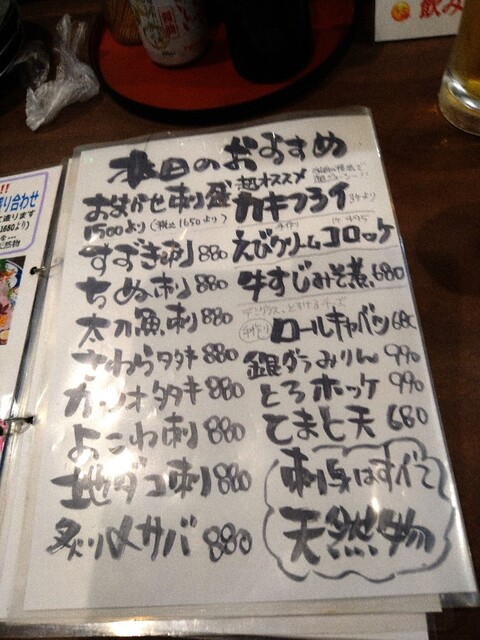 本日のおすすめ
おまかせ刺盛
1500より(税込1650より)
すずき刺 880
ちぬ刺 880
太刀魚刺 880
さわらタタキ 880
カツオタタキ 880
よこわ刺 880
地ダコ刺 880
炙りメサバ 880
超オススメ
カキフライ
手作り 1ケ 495
えびクリームコロッケ
牛すじみそ煮 680
手作り ロールキャベツ 680
銀ダラみりん 990
とろホッケ 990
てまと天 680
刺身はすべて
天然物
り合わせ
飲み